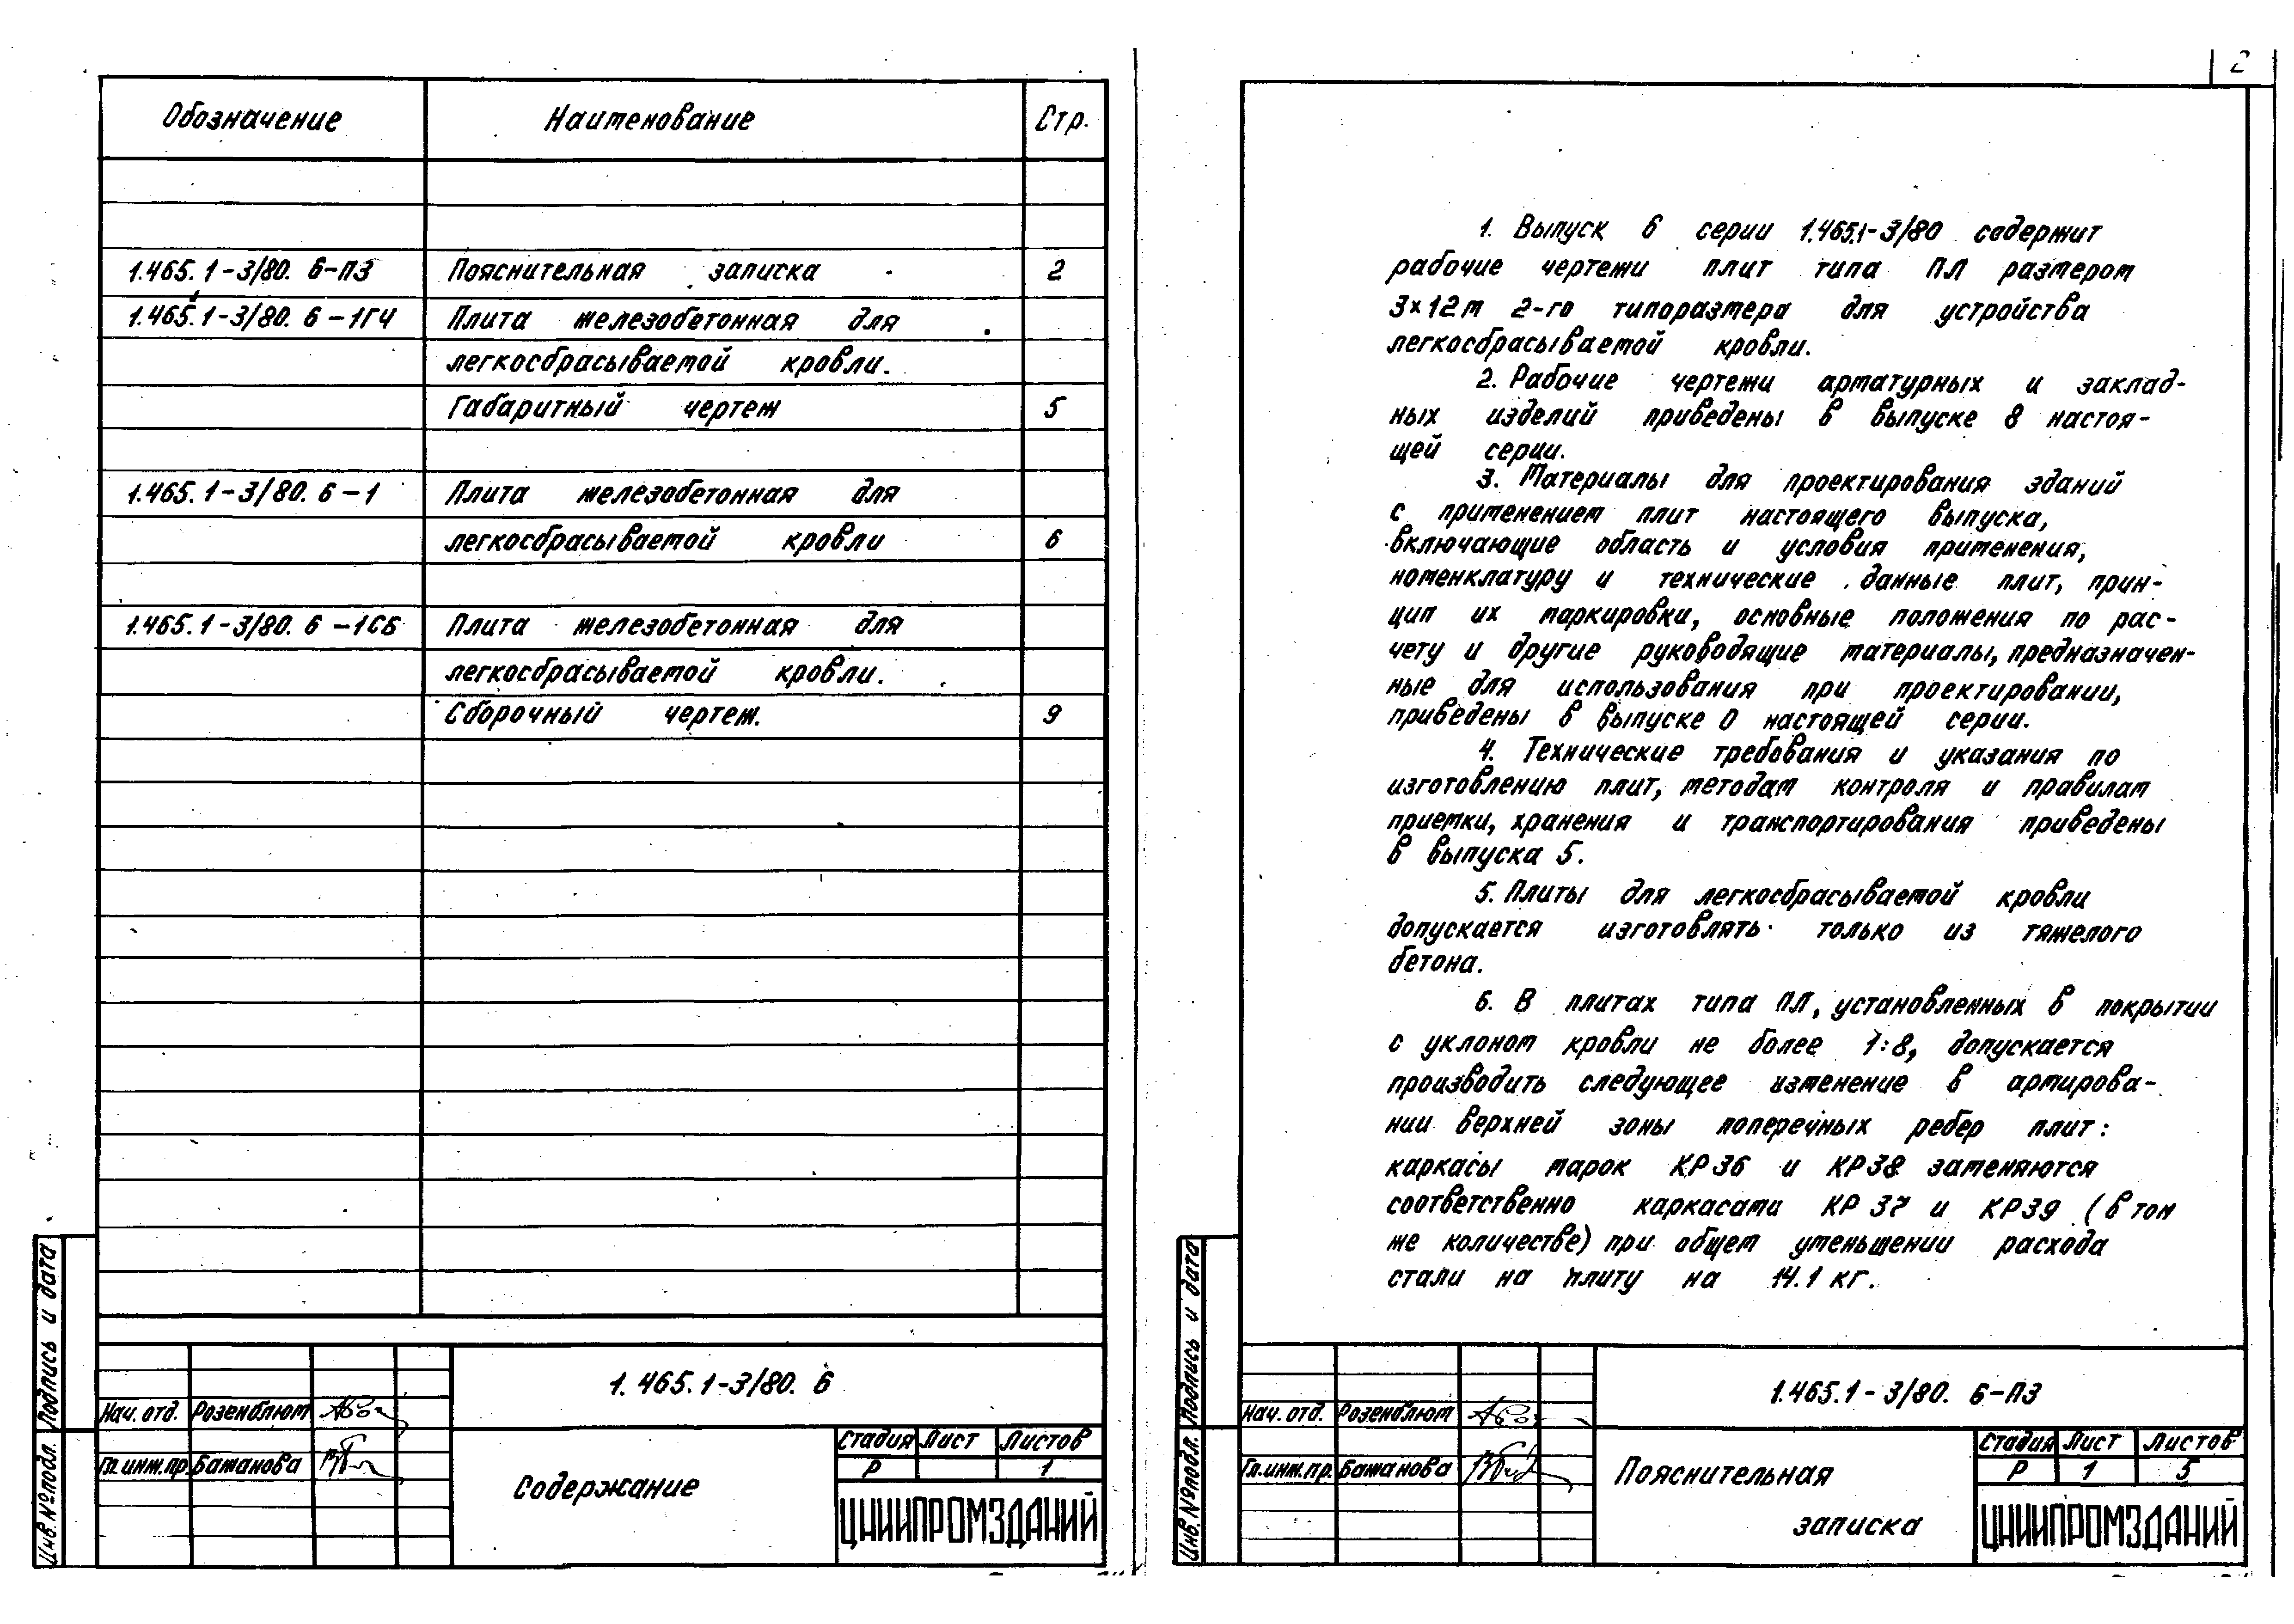 Обозначение Наименование Стр.
1.465.1-3/80. 6-ПЗ Пояснительная записка 2
1.465.1-3/80. 6-1ГЧ Плита железобетонная для
легкосбрасываемой кровли.
Габаритный чертеж 5
1.465.1-3/80. 6-1 Плита железобетонная для
легкосбрасываемой кровли 6
1.465.1-3/80. 6-1СБ Плита железобетонная для
легкосбрасываемой кровли.
Сборочный чертеж. 9
Подпись и дата
Инв.№подл.
1.465.1-3/80. 6
Нач. отд. Розенблюм
Гл.инж.пр. Бажанова
Содержание
Стадия Лист Листов
Р 1
ЦНИИПРОМЗДАНИЙ
2
1. Выпуск 6 серии 1.465.1-3/80 содержит
рабочие чертежи плит типа ПЛ размером
3×12м 2-го типоразмера для устройства
легкосбрасываемой кровли.
2. Рабочие чертежи арматурных и заклад-
ных изделий приведены в выпуске 8 настоя-
щей серии.
3. Материалы для проектирования зданий
с применением плит настоящего выпуска,
включающие область и условия применения,
номенклатуру и технические данные плит, прин-
цип их маркировки, основные положения по рас-
чету и другие руководящие материалы, предназначен-
ные для использования при проектировании,
приведены в выпуске 0 настоящей серии.
4. Технические требования и указания по
изготовлению плит, методам контроля и правилам
приемки, хранения и транспортирования приведены
в выпуска 5.
5. Плиты для легкосбрасываемой кровли
допускается изготовлять только из тяжелого
бетона.
6. В плитах типа ПЛ, установленных в покрытии
с уклоном кровли не более 1:8, допускается
производить следующее изменение в армирова-
нии верхней зоны поперечных ребер плит:
каркасы марок КР36 и КР38 заменяются
соответственно каркасами КР 37 и КР39 (в том
же количестве) при общем уменьшении расхода
стали на плиту на 14.1 кг.
Подпись и дата
Инв.№подл.
1.465.1-3/80. 6-ПЗ
Нач. отд. Розенблюм
Гл.инж.пр. Бажанова
Пояснительная
записка
Стадия Лист Листов
Р 1 5
ЦНИИПРОМЗДАНИЙ